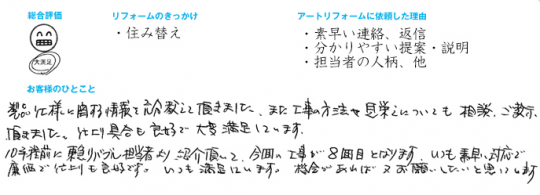 総合評価
リフォームのきっかけ
アートリフォームに依頼した理由
・住み替え
・素早い連絡、返信
・分かりやすい提案・説明
・担当者の人柄、他
大満足
お客様のひとこと
製品仕様に関する情報で診教えて頂きました、また工事の方法や見栄えについても相談、ご教示
頂きました。仕上り具合も良好で大変満足しています。
10年程前に東急リバブル担当者より紹介頂いて、今回の工事が8回目となります。いつも素早い対応で
廉価で仕上りも良好です。いつも満足しています。機会があれば又お願いしたいと思います